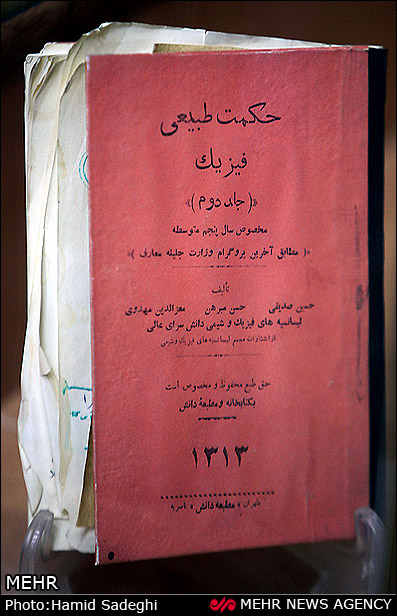 حکمت طبیعی
فیزیك
«( جلد دوم )»
مخصوص سال پنجم متوسطه
«( مطابق آخرین پروگرام وزارت جلیله معارف )»
تألیف
حسین صدیقی حسن میرهن معزالدین مهدوی
لیسانسیه های فیزیك و شیمی دانش سرای عالی
از انتشارات مجمع لیسانسیه های فیزیك و شیمی
حق طبع محفوظ و مخصوص است
بکتابخانه و مطبعهٔ دانش
۱۳۱۳
طهران « مطبعه دانش »
MEHR
Photo:Hamid Sadeghi
MEHR NEWS AGENCY